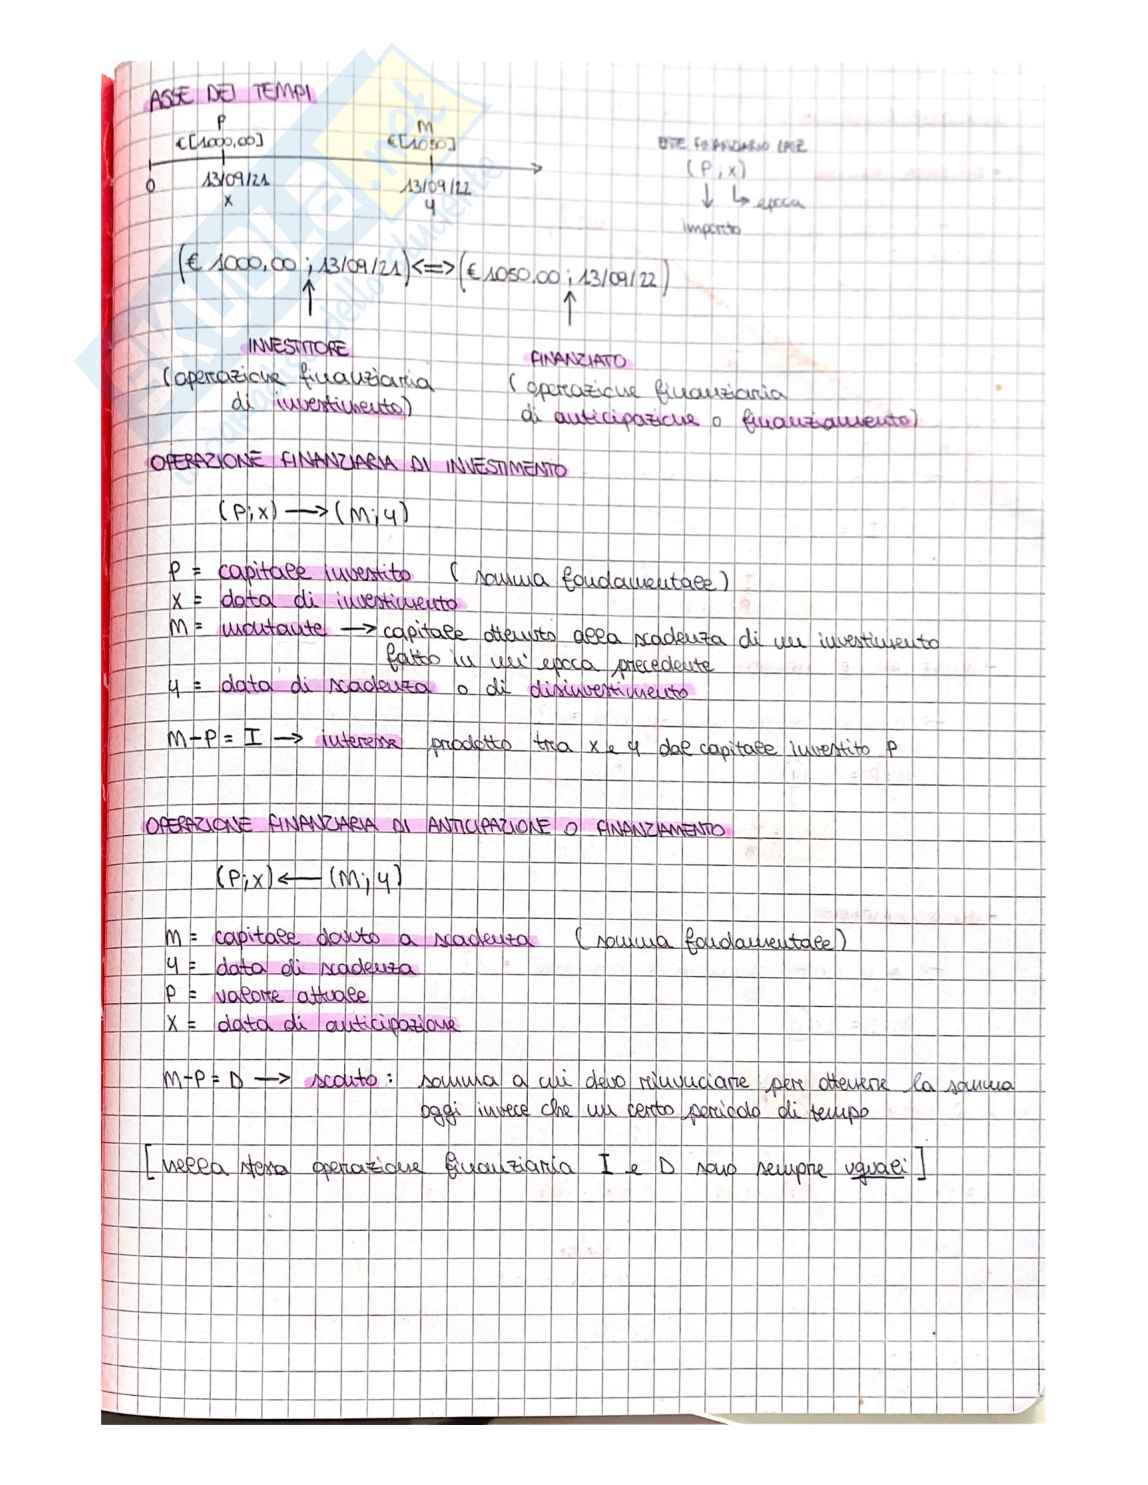 ASSE DEI TEMPI
P
€[1000,00]
M
€[1050]
0
13/09/21
x
13/09/22
y
ENTE FINANZIARIO
(P; x)
epoca
importo
(€ 1000,00 ; 13/09/21) <=> (€ 1050,00 ; 13/09/22)
INVESTITORE
(operazione finanziaria
di investimento)
FINANZIATO
(operazione finanziaria
di anticipazione o finanziamento)
OPERAZIONE FINANZIARIA DI INVESTIMENTO
(P; x) → (M; y)
P = capitale investito (somma fondamentale)
x = data di investimento
M = montante → capitale ottenuto alla scadenza di un investimento
fatto in un'epoca precedente
y = data di scadenza o di disinvestimento
M-P = I → interesse prodotto tra x e y dal capitale investito P
OPERAZIONE FINANZIARIA DI ANTICIPAZIONE O FINANZIAMENTO
(P; x) ← (M; y)
M = capitale dovuto a scadenza (somma fondamentale)
y = data di scadenza
P = valore attuale
x = data di anticipazione
M-P = D → sconto: somma a cui devo rinunciare per ottenere la somma
oggi invece che un certo periodo di tempo
[nella stessa operazione finanziaria I e D sono sempre uguali]